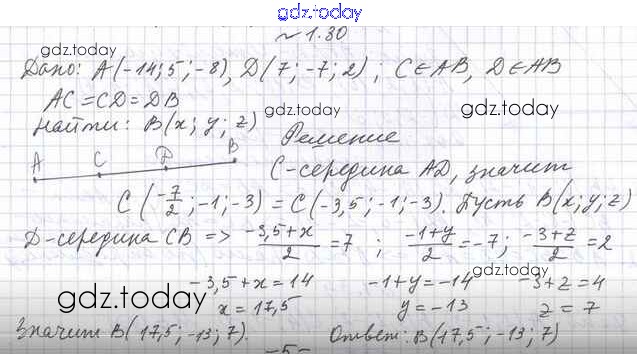 gdz.today
№ 1.30
gdz.today gdz.today
Дано: A(-14; 5; -8), D(7; -7; 2); C∈AB, D∈AB
AC = CD = DB
gdz.today gdz.today
Найти: B(x; y; z)
Решение
A C D B
C-середина AD, значит
C(-7/2; -1; -3) = C(-3,5; -1; -3). Пусть B(x; y; z)
D-середина CB => (-3,5+x)/2 = 7; (-1+y)/2 = -7; (-3+z)/2 = 2
gdz.today
-3,5+x = 14 -1+y = -14 -3+z = 4
gdz.today
x = 17,5 y = -13 z = 7
Значит B(17,5; -13; 7). Ответ: B(17,5; -13; 7)
-5-